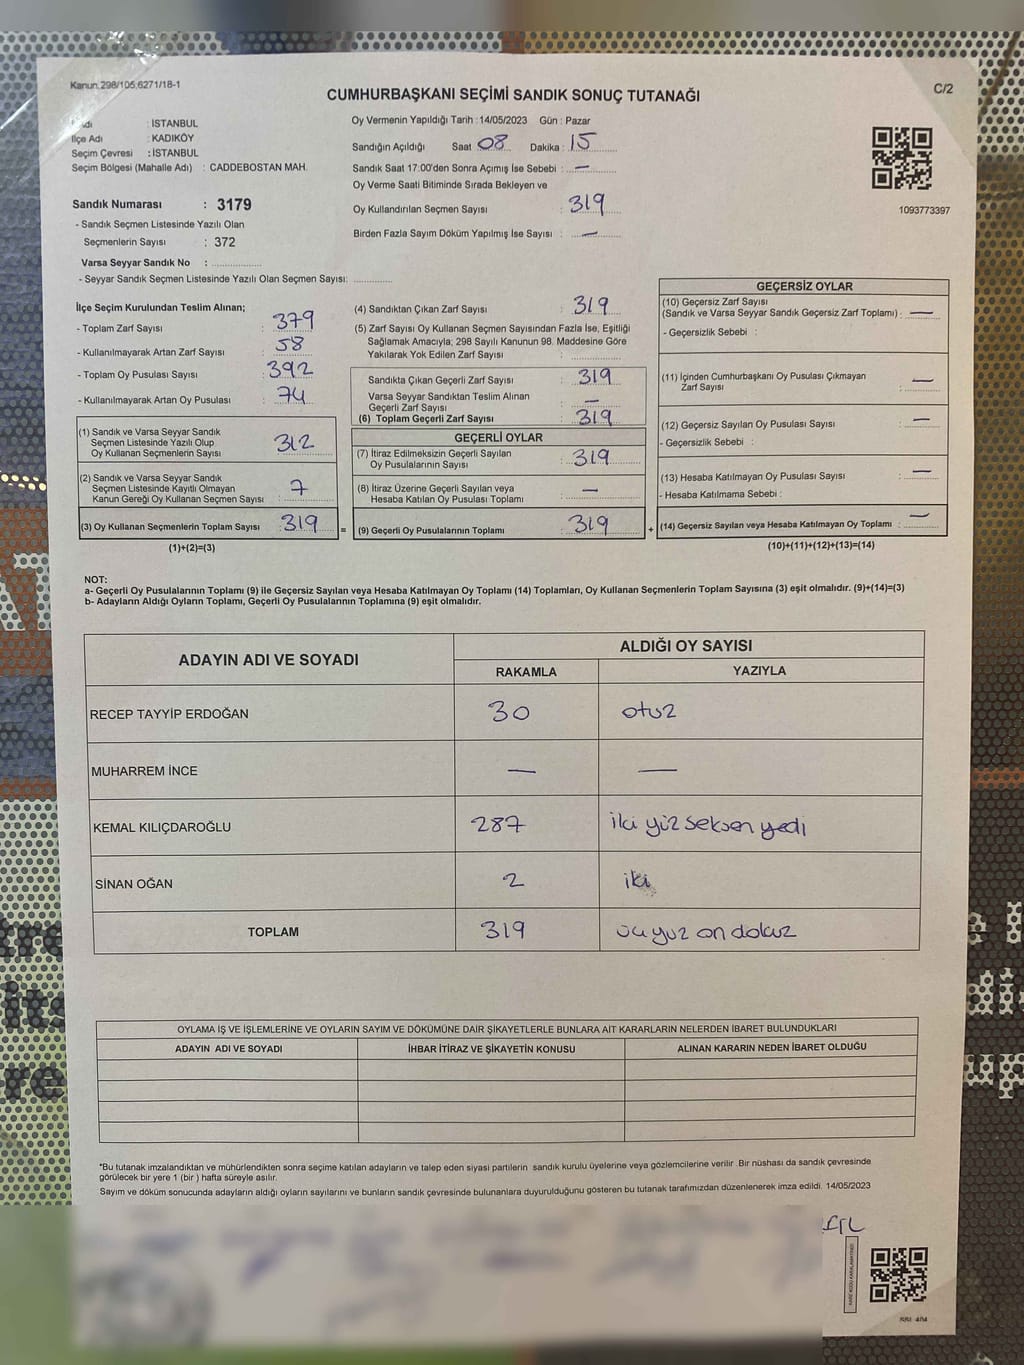 Kanun:298/105,6271/18-1
C/2
CUMHURBAŞKANI SEÇİMİ SANDIK SONUÇ TUTANAĞI
: İSTANBUL
İlçe Adı : KADIKÖY
Seçim Çevresi : İSTANBUL
Seçim Bölgesi (Mahalle Adı) : CADDEBOSTAN MAH.
Sandık Numarası : 3179
- Sandık Seçmen Listesinde Yazılı Olan
Seçmenlerin Sayısı : 372
Varsa Seyyar Sandık No :
- Seyyar Sandık Seçmen Listesinde Yazılı Olan Seçmen Sayısı:
Oy Vermenin Yapıldığı Tarih :14/05/2023 Gün : Pazar
Sandığın Açıldığı Saat 08 Dakika : 15
Sandık Saat 17:00'den Sonra Açımış İse Sebebi : —
Oy Verme Saati Bitiminde Sırada Bekleyen ve
Oy Kullandırılan Seçmen Sayısı : 319
Birden Fazla Sayım Döküm Yapılmış İse Sayısı : —
1093773397
İlçe Seçim Kurulundan Teslim Alınan;
- Toplam Zarf Sayısı : 379
- Kullanılmayarak Artan Zarf Sayısı : 58
- Toplam Oy Pusulası Sayısı : 392
- Kullanılmayarak Artan Oy Pusulası : 74
(1) Sandık ve Varsa Seyyar Sandık
Seçmen Listesinde Yazılı Olup
Oy Kullanan Seçmenlerin Sayısı : 312
(2) Sandık ve Varsa Seyyar Sandık
Seçmen Listesinde Kayıtlı Olmayan
Kanun Gereği Oy Kullanan Seçmen Sayısı : 7
(3) Oy Kullanan Seçmenlerin Toplam Sayısı : 319 =
(1)+(2)=(3)
(4) Sandıktan Çıkan Zarf Sayısı : 319
(5) Zarf Sayısı Oy Kullanan Seçmen Sayısından Fazla İse, Eşitliği
Sağlamak Amacıyla; 298 Sayılı Kanunun 98. Maddesine Göre
Yakılarak Yok Edilen Zarf Sayısı :
Sandıkta Çıkan Geçerli Zarf Sayısı : 319
Varsa Seyyar Sandıktan Teslim Alınan
Geçerli Zarf Sayısı : —
(6) Toplam Geçerli Zarf Sayısı : 319
GEÇERLİ OYLAR
(7) İtiraz Edilmeksizin Geçerli Sayılan
Oy Pusulalarının Sayısı : 319
(8) İtiraz Üzerine Geçerli Sayılan veya
Hesaba Katılan Oy Pusulası Toplamı : —
(9) Geçerli Oy Pusulalarının Toplamı : 319 +
GEÇERSİZ OYLAR
(10) Geçersiz Zarf Sayısı
(Sandık ve Varsa Seyyar Sandık Geçersiz Zarf Toplamı) : —
- Geçersizlik Sebebi :
(11) İçinden Cumhurbaşkanı Oy Pusulası Çıkmayan
Zarf Sayısı : —
(12) Geçersiz Sayılan Oy Pusulası Sayısı : —
- Geçersizlik Sebebi :
(13) Hesaba Katılmayan Oy Pusulası Sayısı : —
- Hesaba Katılmama Sebebi :
(14) Geçersiz Sayılan veya Hesaba Katılmayan Oy Toplamı : —
(10)+(11)+(12)+(13)=(14)
NOT:
a- Geçerli Oy Pusulalarının Toplamı (9) ile Geçersiz Sayılan veya Hesaba Katılmayan Oy Toplamı (14) Toplamları, Oy Kullanan Seçmenlerin Toplam Sayısına (3) eşit olmalıdır. (9)+(14)=(3)
b- Adayların Aldığı Oyların Toplamı, Geçerli Oy Pusulalarının Toplamına (9) eşit olmalıdır.
ADAYIN ADI VE SOYADI
ALDIĞI OY SAYISI
RAKAMLA YAZIYLA
RECEP TAYYİP ERDOĞAN 30 otuz
MUHARREM İNCE — —
KEMAL KILIÇDAROĞLU 287 iki yüz seksen yedi
SİNAN OĞAN 2 iki
TOPLAM 319 üç yüz on dokuz
OYLAMA İŞ VE İŞLEMLERİNE VE OYLARIN SAYIM VE DÖKÜMÜNE DAİR ŞİKAYETLERLE BUNLARA AİT KARARLARIN NELERDEN İBARET BULUNDUKLARI
ADAYIN ADI VE SOYADI İHBAR İTİRAZ VE ŞİKAYETİN KONUSU ALINAN KARARIN NEDEN İBARET OLDUĞU
*Bu tutanak imzalandıktan ve mühürlendikten sonra seçime katılan adayların ve talep eden siyasi partilerin sandık kurulu üyelerine veya gözlemcilerine verilir .Bir nüshası da sandık çevresinde
görülecek bir yere 1 (bir ) hafta süreyle asılır.
Sayım ve döküm sonucunda adayların aldığı oyların sayılarını ve bunların sandık çevresinde bulunanlara duyurulduğunu gösteren bu tutanak tarafımızdan düzenlenerek imza edildi. 14/05/2023